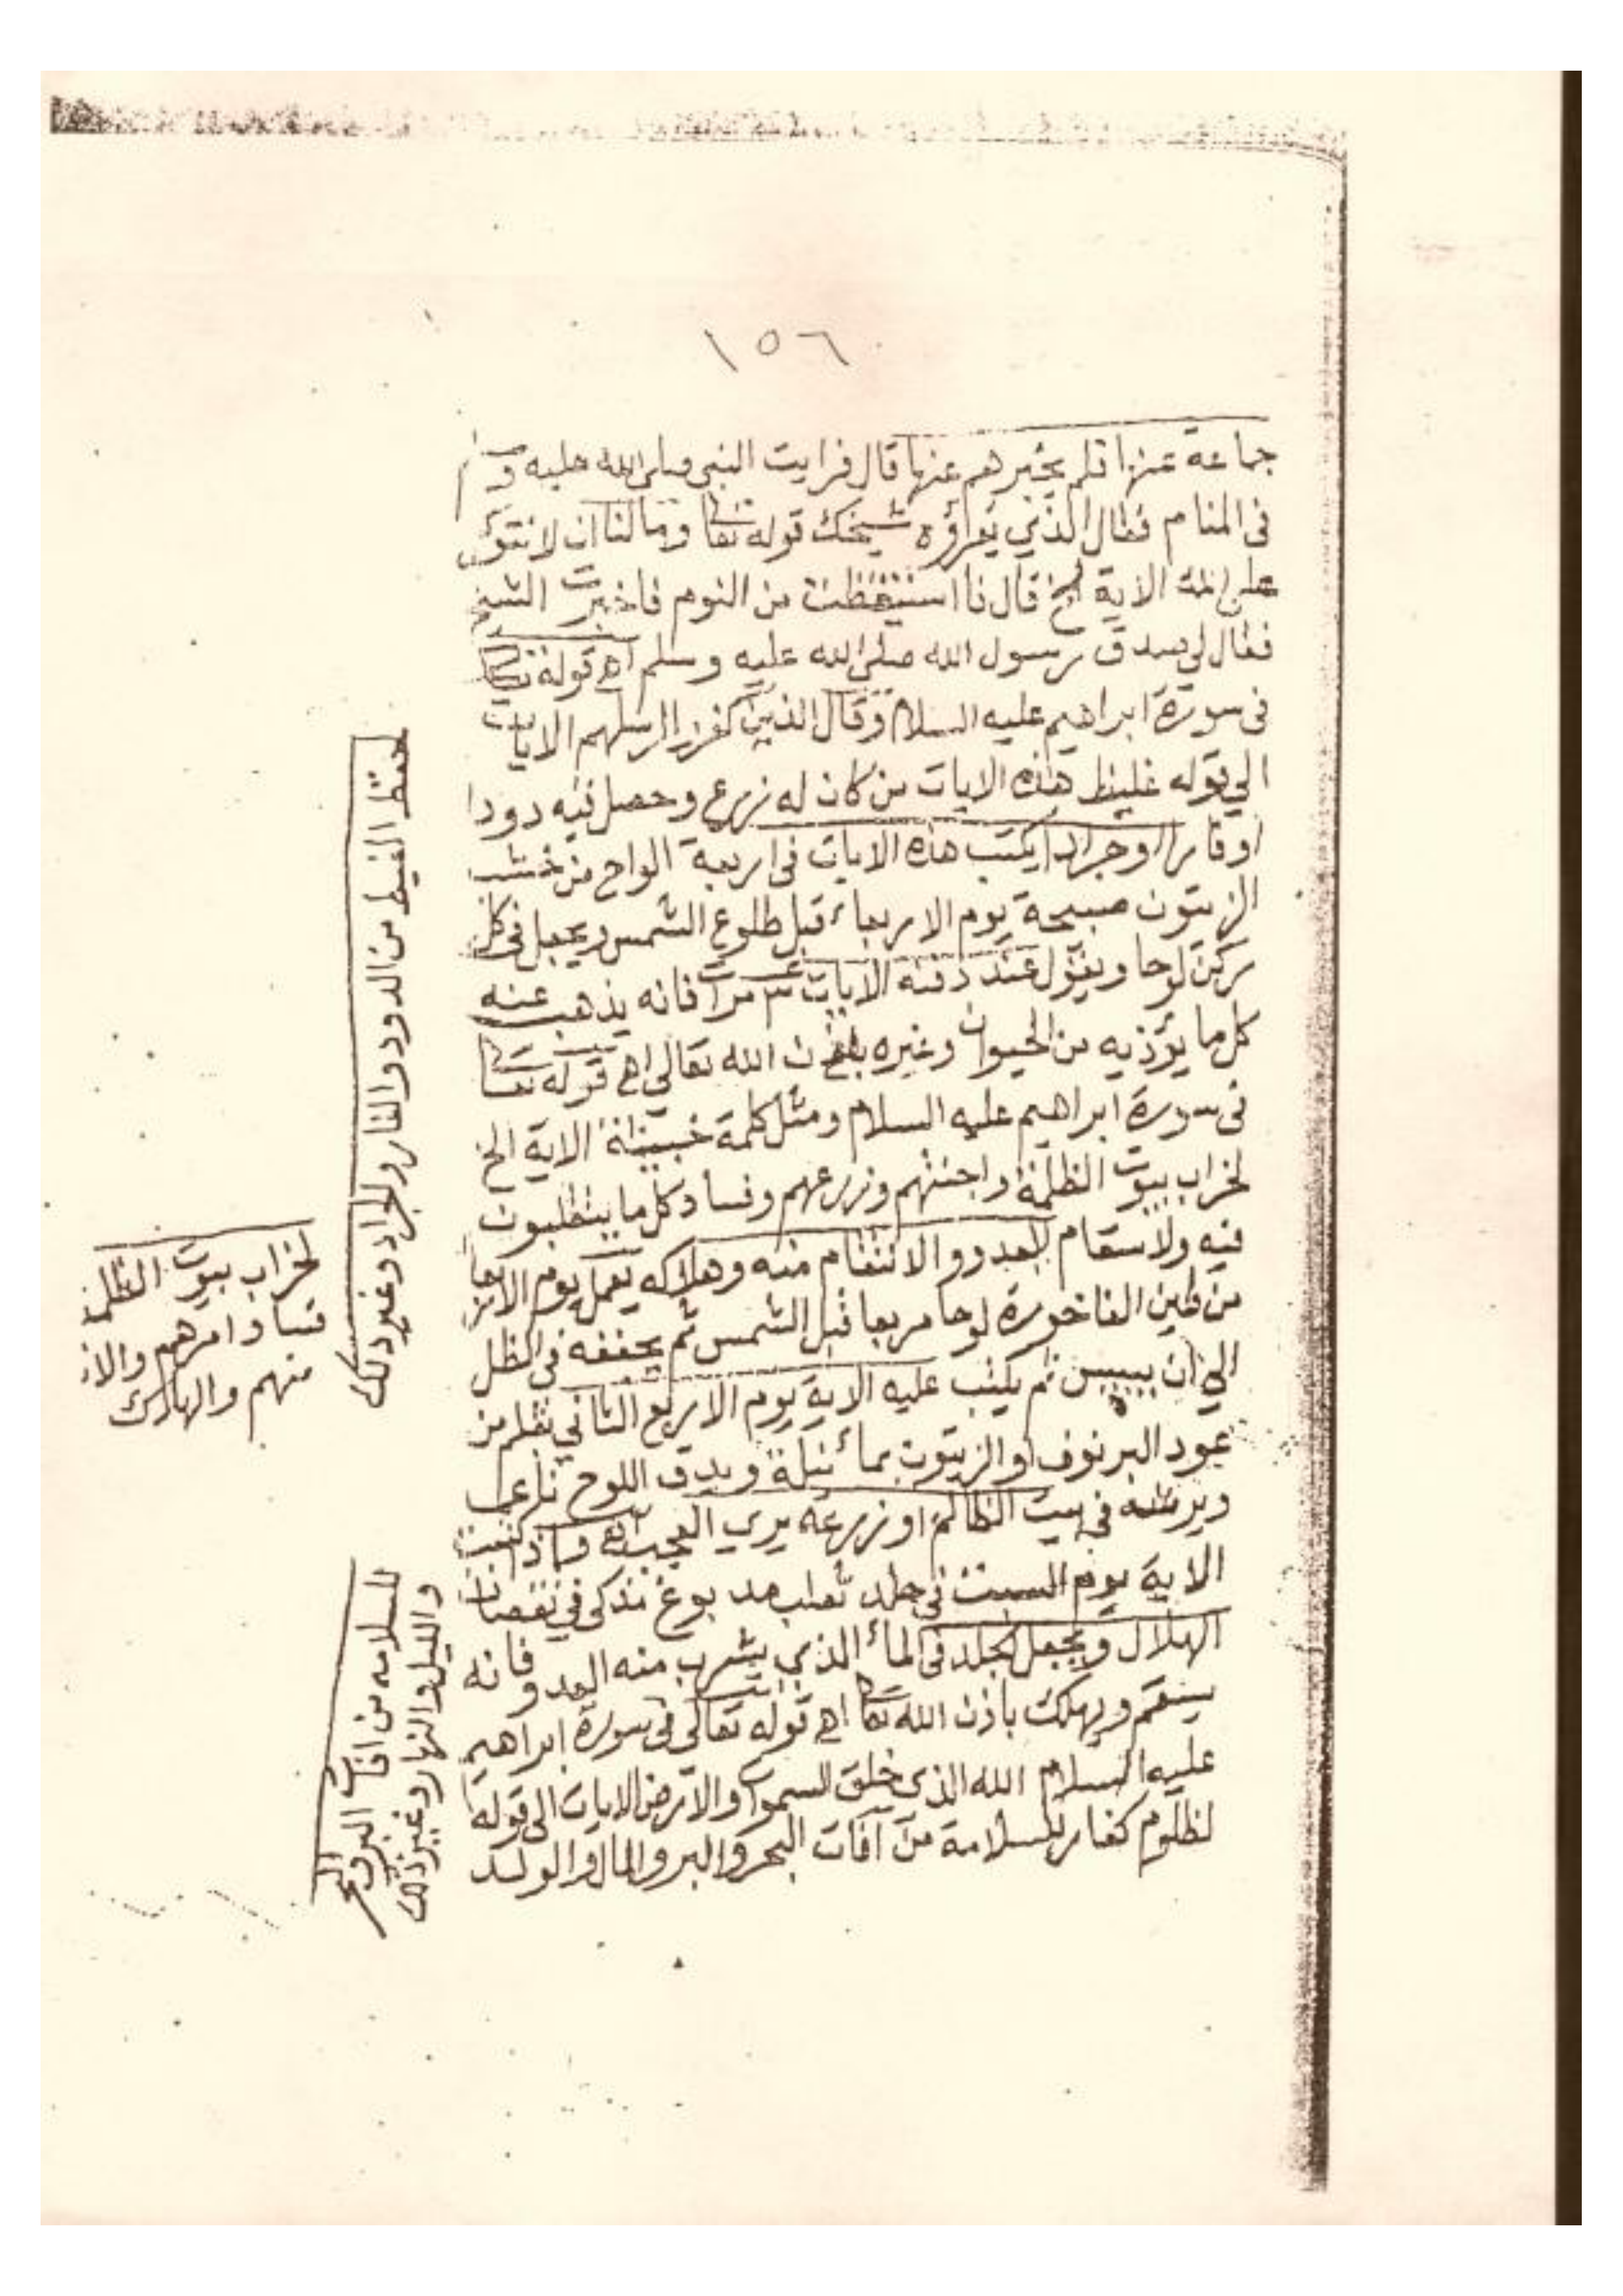 ١٥٦
جماعة عنها فلم يخبرهم عنها قال فرايت النبي صلى الله عليه وسلم
في المنام فقال الذي يقراؤه شيخك قوله تعا وما لنا ان لا نتوكل
على الله الاية الخ قال فا استيقظت من النوم فاخبرت الشيخ
فقال لي صدق رسول الله صلى الله عليه وسلم اهـ قوله تعا
في سورة ابراهيم عليه السلام وقال الذين كفروا لرسلهم الايات
الى قوله غليظ هذه الايات من كان له زرع وحصل فيه دودا
او فارا او جرادا يكتب هذه الايات في اربعة الواح من خشب
الزيتون صبيحة يوم الاربعاء قبل طلوع الشمس ويجعل في كل
ركن لوحا ويقول عند دفنه الايات ٣ مرات فانه يذهب عنه
كل ما يؤذيه من الحيوان وغيره باذن الله تعالى اهـ قوله تعا
في سورة ابراهيم عليه السلام ومثل كلمة خبيثة الاية الخ
لخراب بيوت الظلمة واجنتهم وزرعهم وفساد كل ما يتقلبون
فيه ولاسقام العدو والانتقام منه وهلاكه يعمل يوم الاربعا
من طين الفاخورة لوحا مربعا قبل الشمس ثم يجففه في الظل
الى ان ييبس ثم يكتب عليه الاية يوم الاربع الثاني بقلم من
عود البرنوف او الزيتون بماء نيلة ويدق اللوح ناعما
ويرشه في بيت الظالم او زرعه يرى العجب اهـ واذا كتبت
الاية يوم السبت في جلد ثعلب مدبوغ مذكى في نقصان
الهلال ويجعل الجلد في الماء الذي يشرب منه العدو فانه
يسقم ويهلك باذن الله تعا اهـ قوله تعالى في سورة ابراهيم
عليه السلام الله الذي خلق السموات والارض الايات الى قوله
لظلوم كفار للسلامة من آفات البحر والبر والمال والولد
لحفظ الغيط من الدود والفار والجراد وغير ذلك
لخراب بيوت الظلمة
فساد امرهم
منهم والهلاك
للسلامه من افات البر والبحر
والليل والنهار وغير ذلك